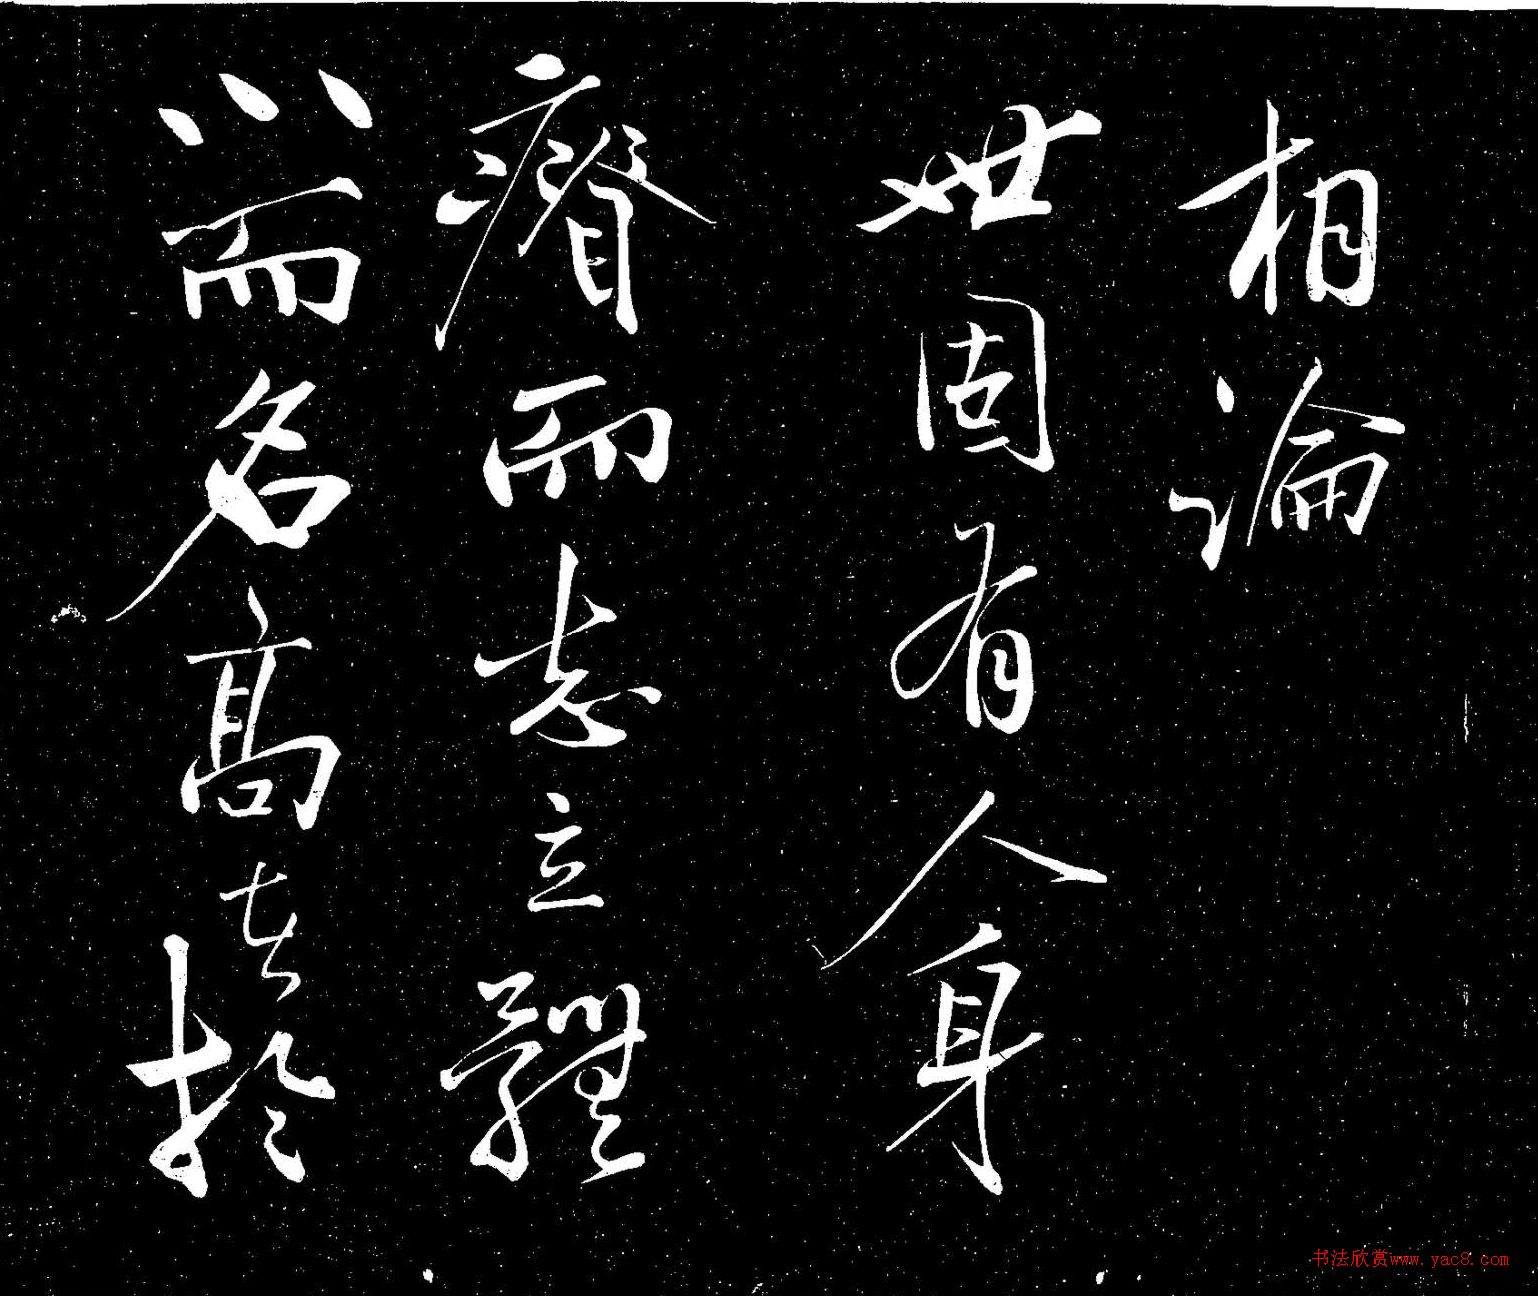 相論
世固有人身
瘠而志立體
小而名高在於
书法欣赏www.yac8.com